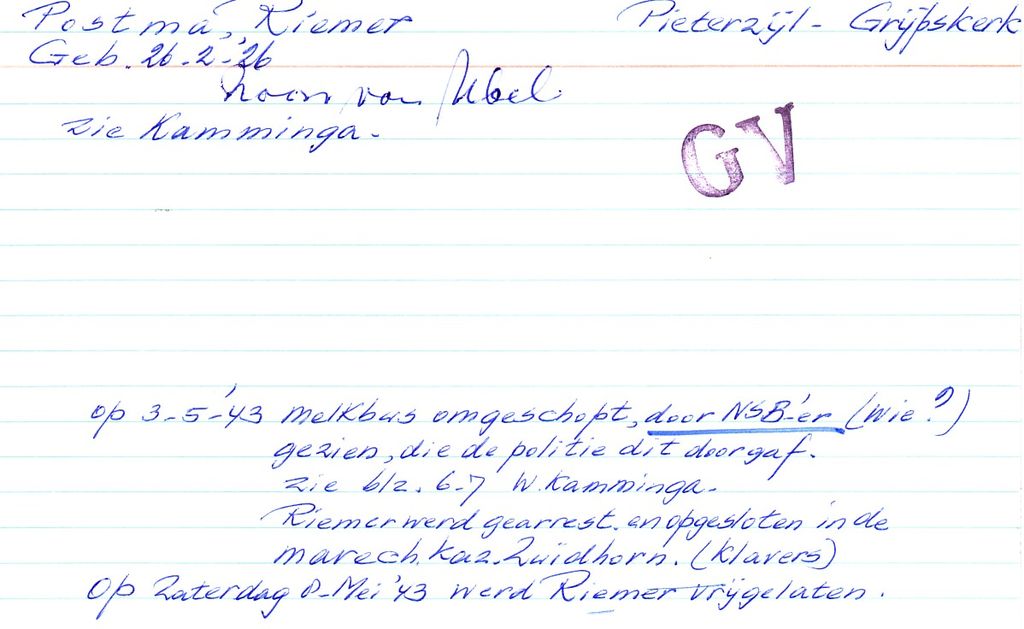 Postma, Riemer Pieterzijl - Grijpskerk
Geb. 26-2-'26
zoon van Abel
zie Kamminga.
GV
Op 3-5-'43 melkbus omgeschopt, door NSB-'er (wie?)
gezien, die de politie dit doorgaf.
zie blz. 6-7 W. Kamminga.
Riemer werd gearrest. en opgesloten in de
marech. kaz. Zuidhorn. (Klavers)
Op Zaterdag 8-Mei '43 werd Riemer vrijgelaten.